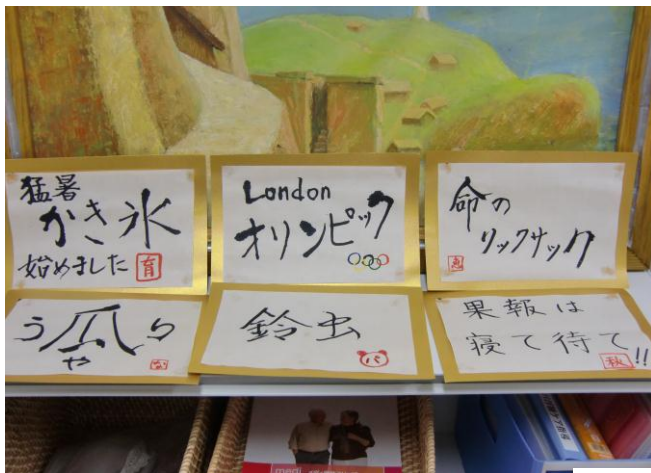 猛暑
かき氷
始めました
育
London
オリンピック
命の
リックサック
恵
鈴虫
パ
果報は
寝て待て!!
秋
medi